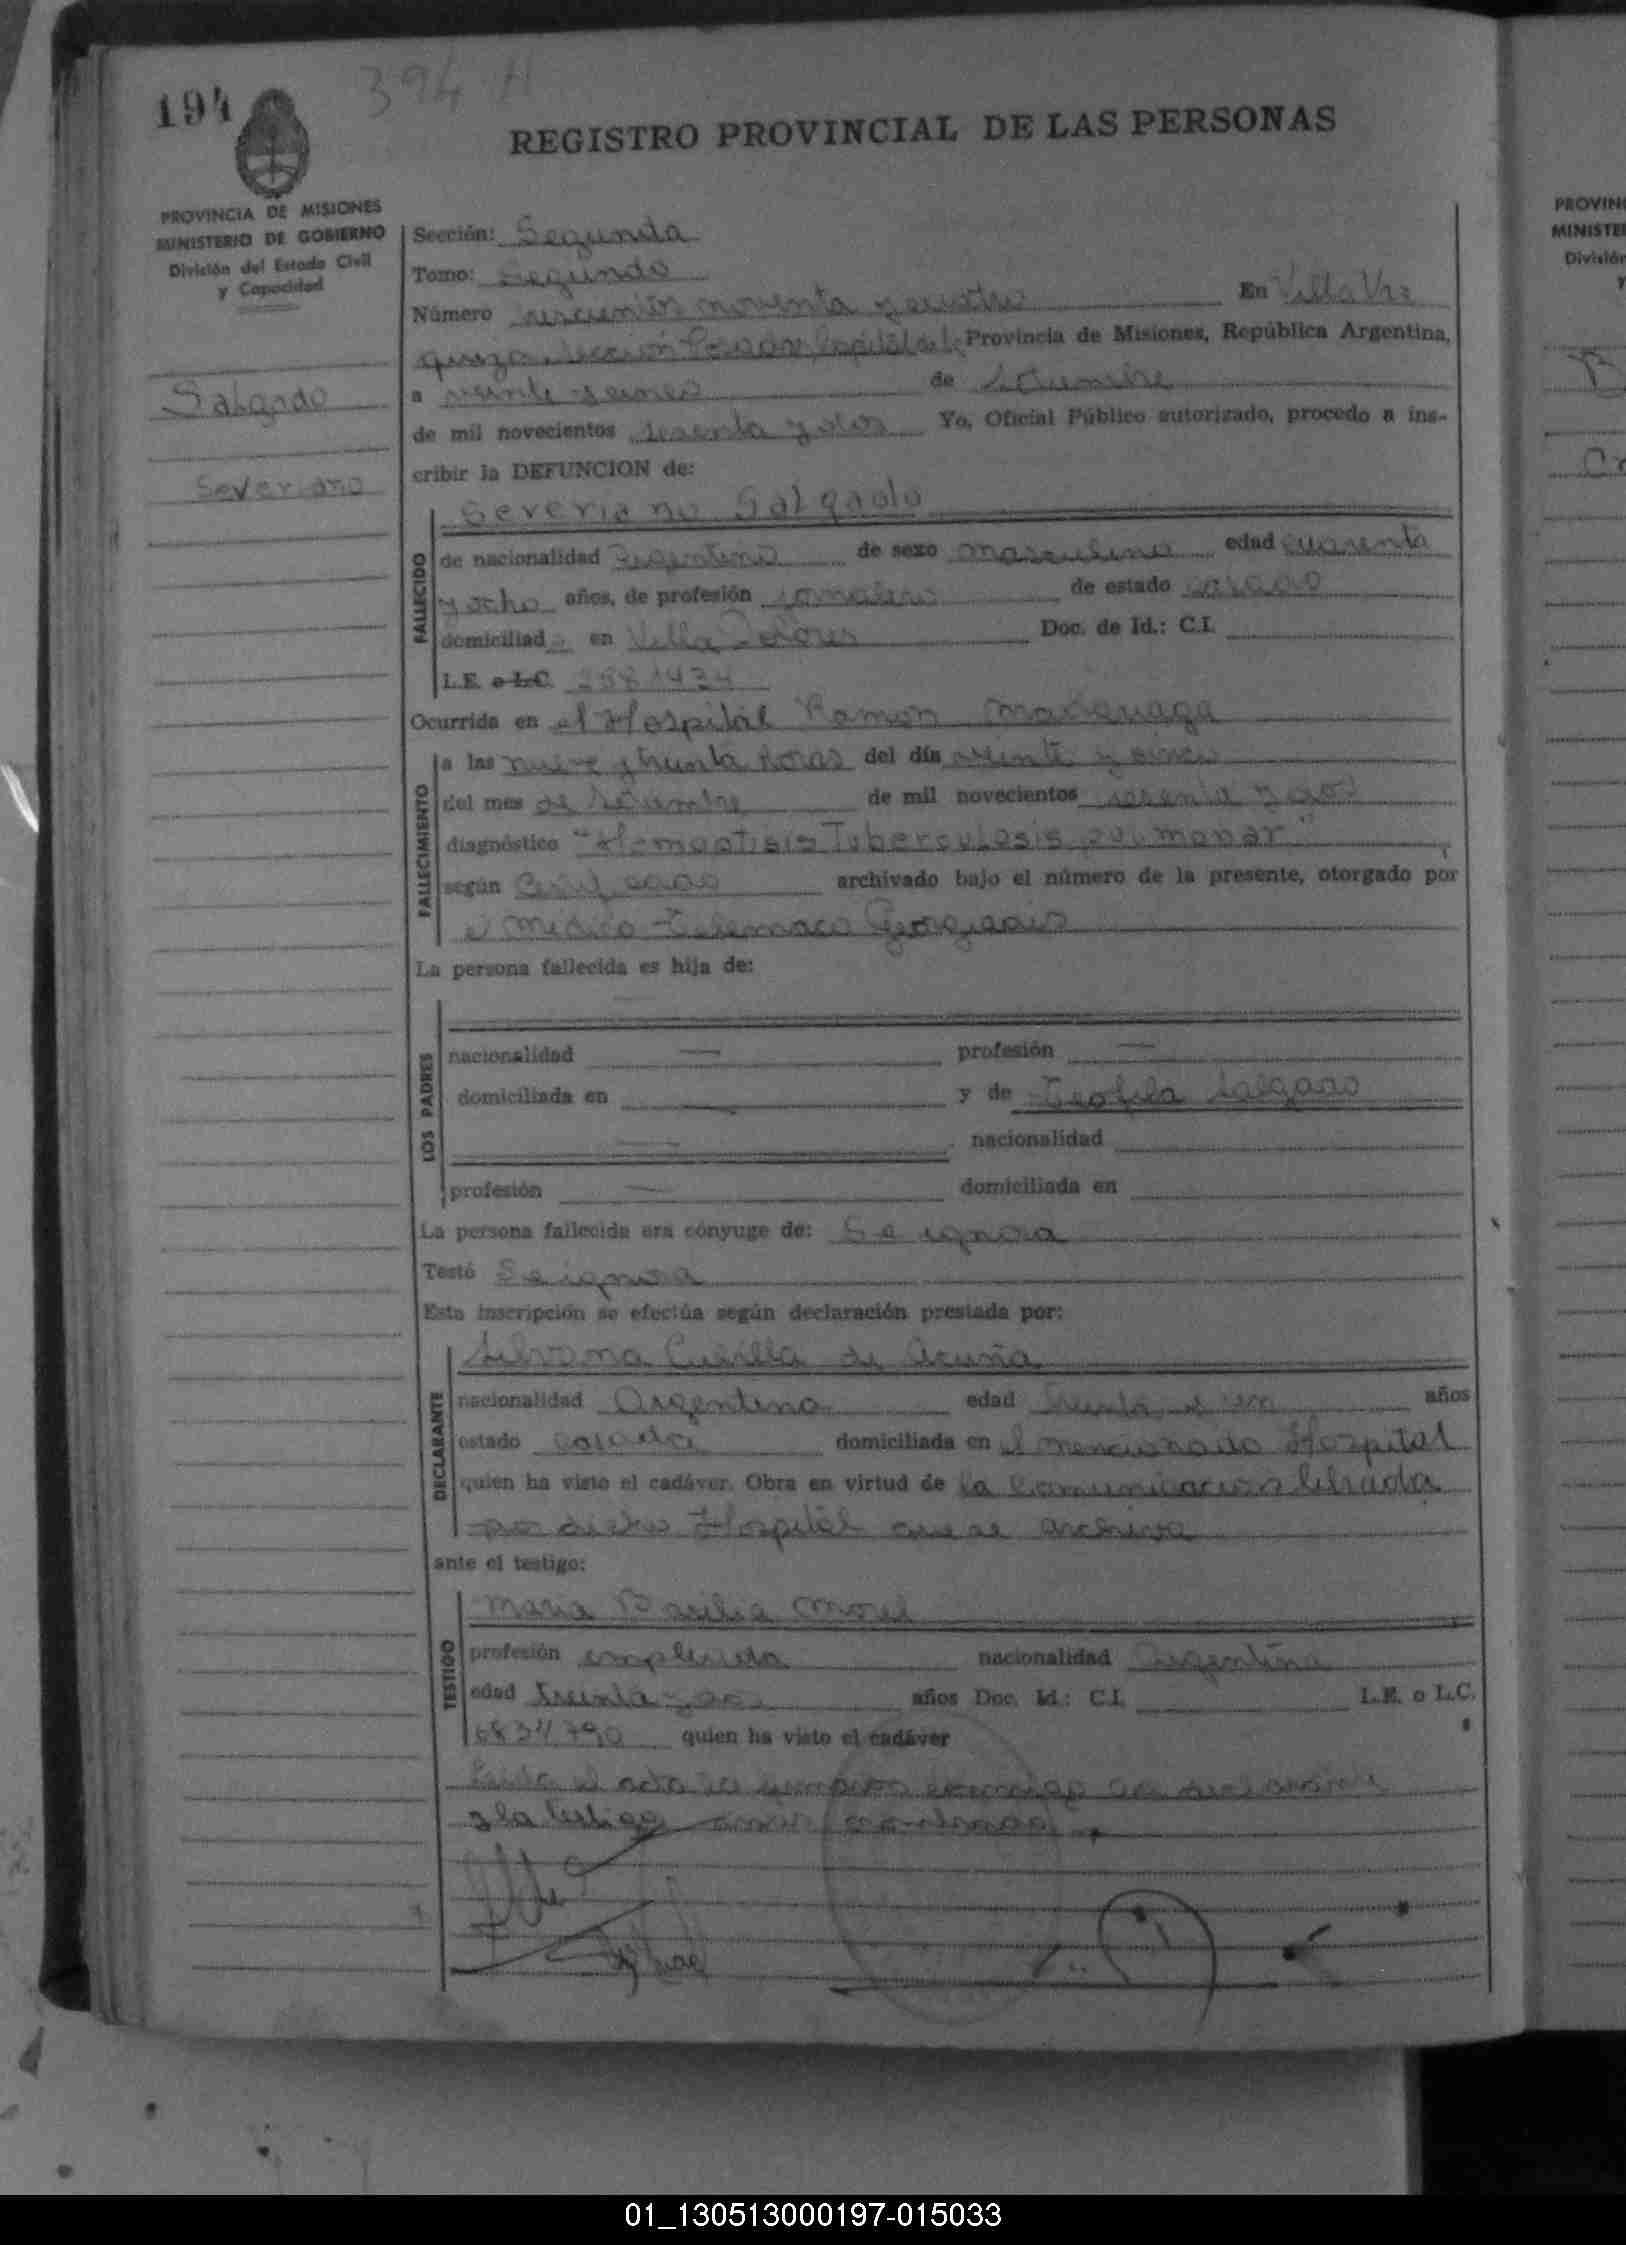 194
394 H
REGISTRO PROVINCIAL DE LAS PERSONAS
PROVINCIA DE MISIONES
MINISTERIO DE GOBIERNO
División del Estado Civil
y Capacidad
Salgado
Severiano
Sección: Segunda
Tomo: Segundo
Número noventa y cuatro En Villa Urq
uiza, sección Posadas Capital de la Provincia de Misiones, República Argentina,
a veinte y cinco de
de mil novecientos sesenta y dos Yo, Oficial Público autorizado, procedo a ins-
cribir la DEFUNCION de:
Severiano Salgado
FALLECIDO
de nacionalidad Argentino de sexo masculino edad cuarenta
y ocho años, de profesión jornalero de estado casado
domiciliado en Villa Dolores Doc. de Id.: C.I.
L.E. o L.C. 2581434
Ocurrida en el Hospital Ramon Madariaga
FALLECIMIENTO
a las nueve y treinta horas del día veinte y cinco
del mes de de mil novecientos sesenta y dos
diagnóstico "Hemoptisis Tuberculosis pulmonar"
según Certificado archivado bajo el número de la presente, otorgado por
el Medico Telemaco Georgiadis
La persona fallecida es hija de:
LOS PADRES
nacionalidad — profesión —
domiciliada en — y de Teofila Salgado
— nacionalidad
profesión — domiciliada en
La persona fallecida era cónyuge de: Se ignora
Testó Se ignora
Esta inscripción se efectúa según declaración prestada por:
DECLARANTE
Silvana Cubilla de Acuña
nacionalidad Argentina edad treinta y un años
estado casada domiciliada en el mencionado Hospital
quien ha visto el cadáver. Obra en virtud de la Comunicacion librada
por dicho Hospital que se archiva
ante el testigo:
TESTIGO
Maria Basilia Morel
profesión empleada nacionalidad Argentina
edad treinta y dos años Doc. Id.: C.I. L.E. o L.C.
6834790 quien ha visto el cadáver
el acta la conmigo la declarante
y la testigo
PROVIN
MINISTE
División
01_130513000197-015033